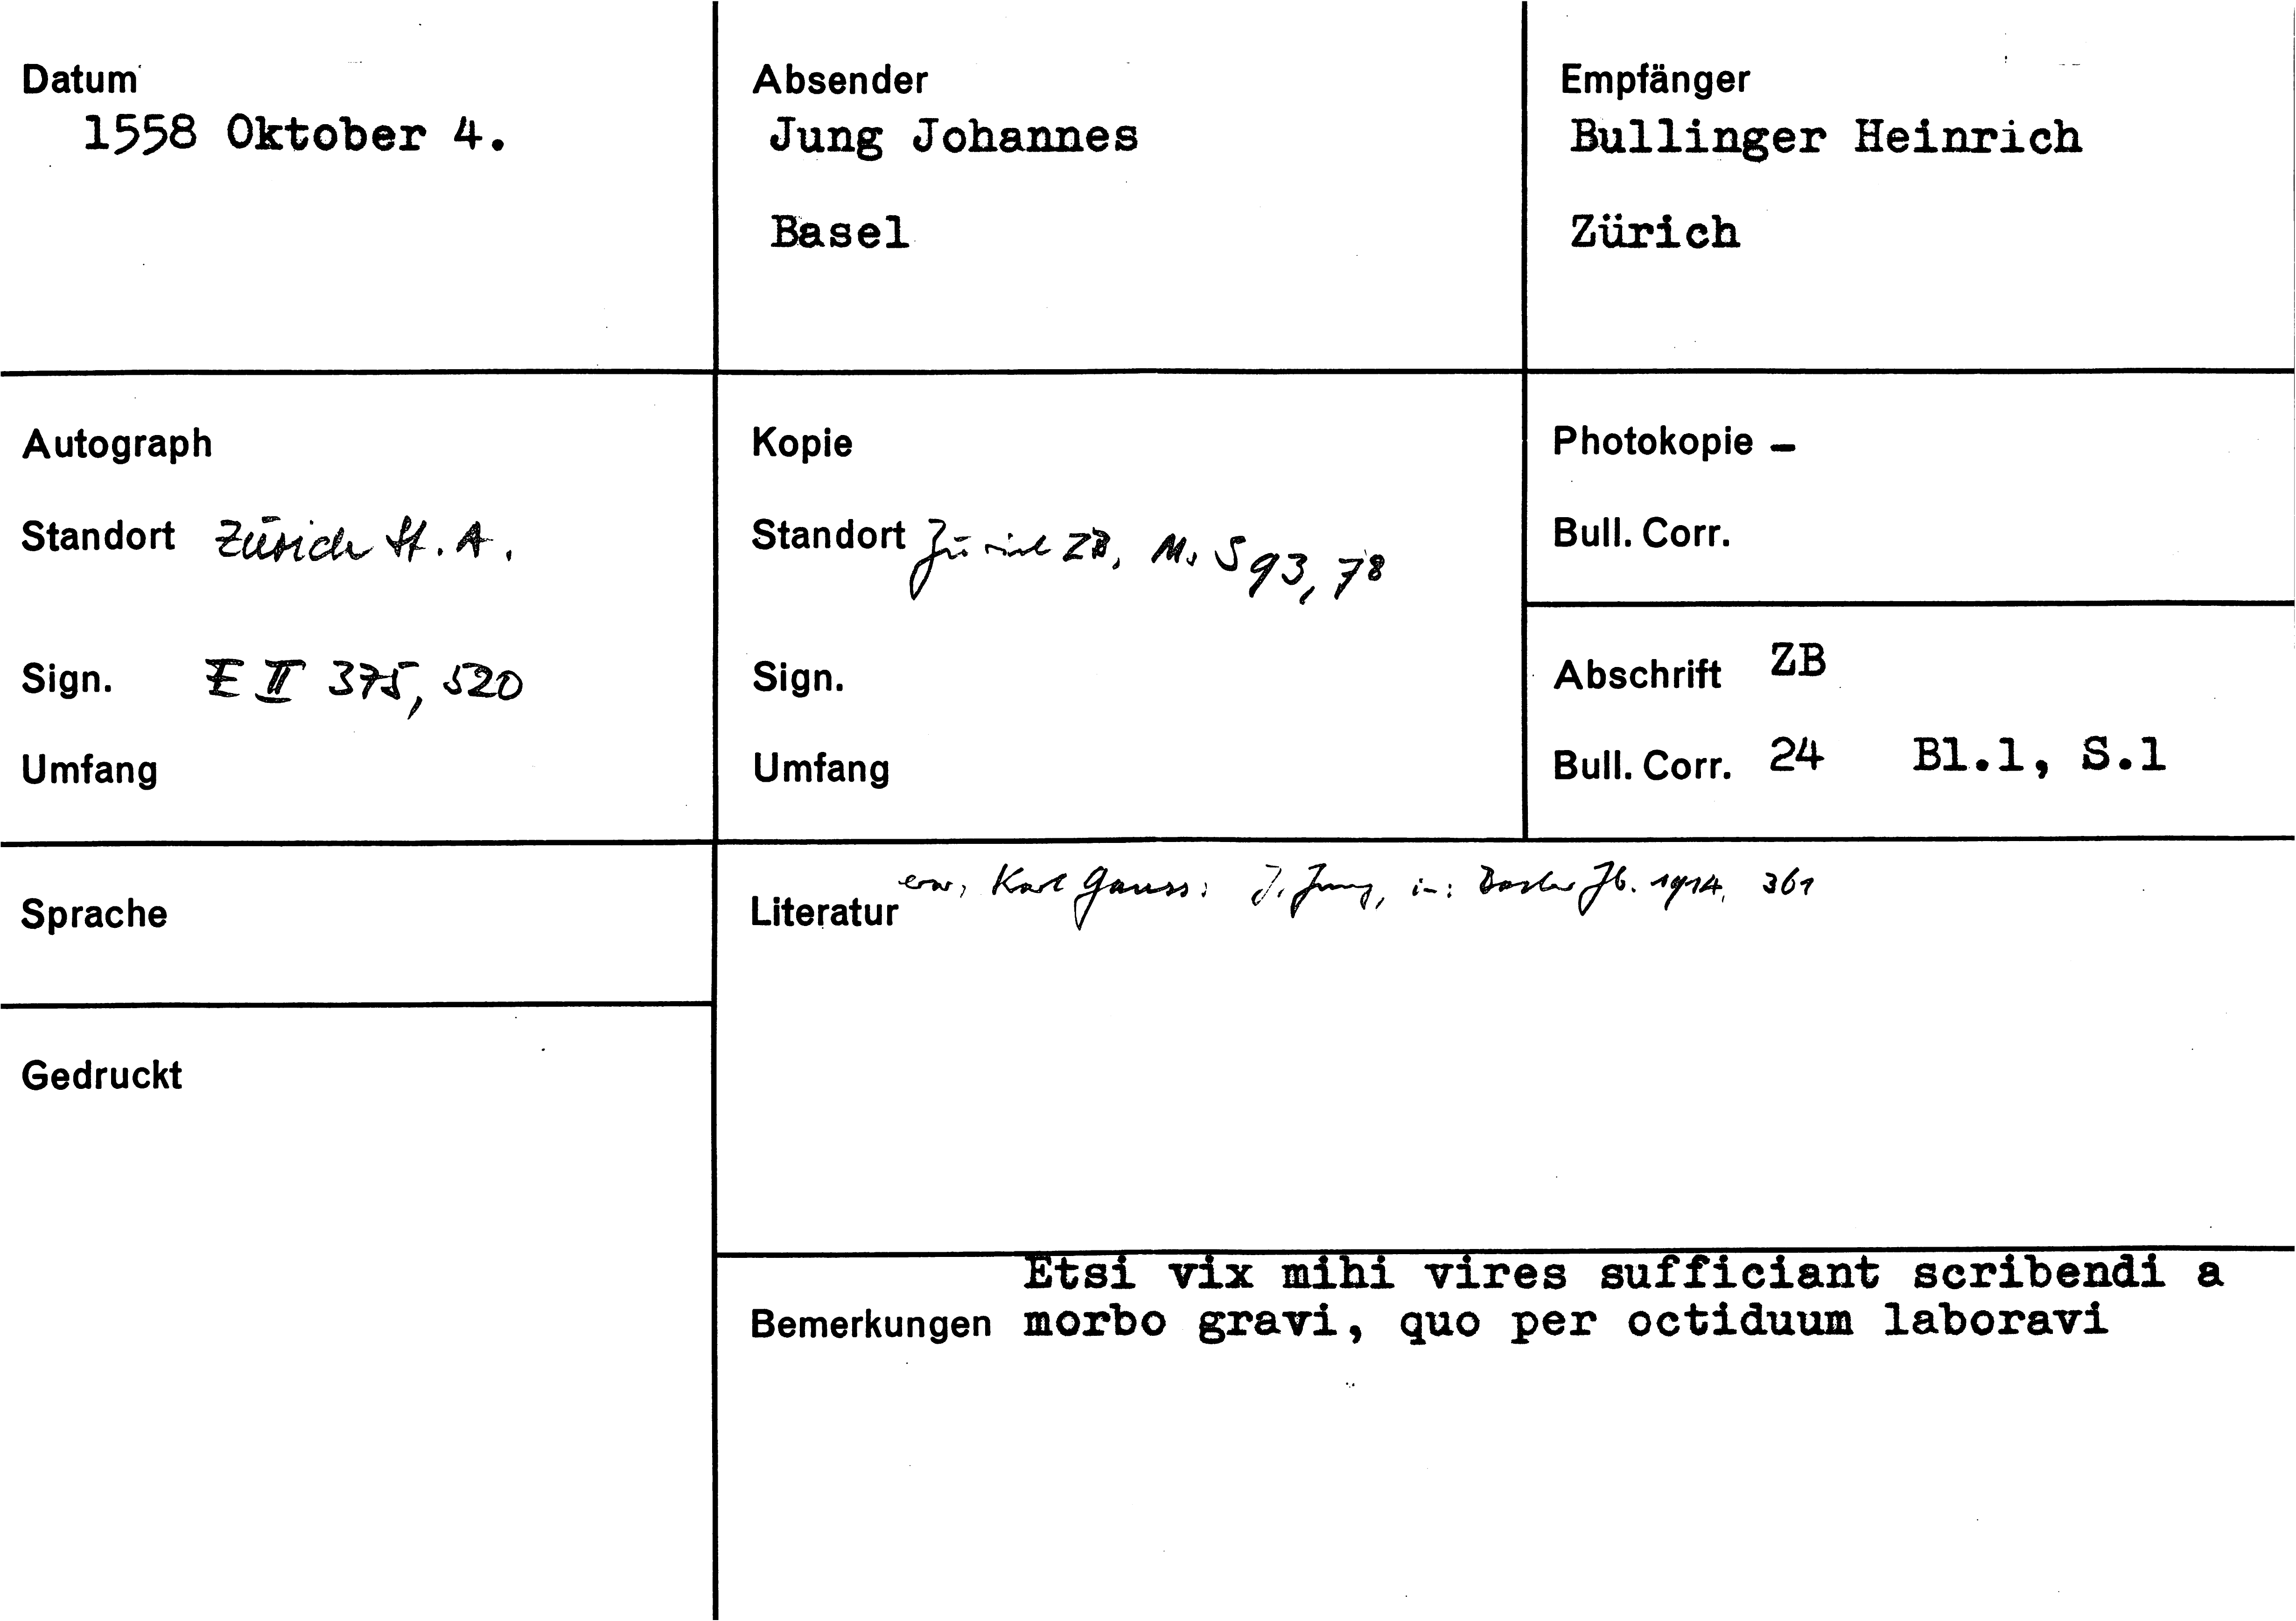 Datum
1558 Oktober 4.
Absender
Jung Johannes
Basel
Empfänger
Bullinger Heinrich
Zürich
Autograph
Standort Zürich St. A.
Sign. E II 375, 520
Umfang
Kopie
Standort Zürich ZB, Ms S 93, 78
Sign.
Umfang
Photokopie -
Bull. Corr.
Abschrift ZB
Bull. Corr. 24 Bl.1, S.1
Sprache
Gedruckt
Literatur erw, Karl Gauss: J. Jung, in: Basler Jb. 1914, 361
Etsi vix mihi vires sufficiant scribendi a
Bemerkungen morbo gravi, quo per octiduum laboravi